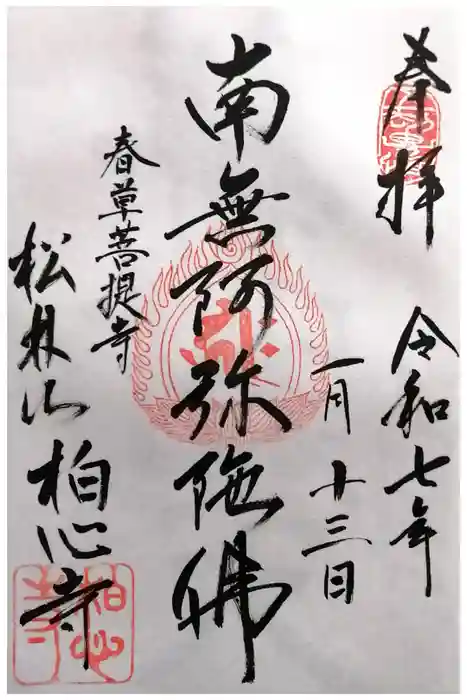 奉拝
令和七年
一月十三日
南無阿弥陀佛
春草菩提寺
松林山 柏心寺